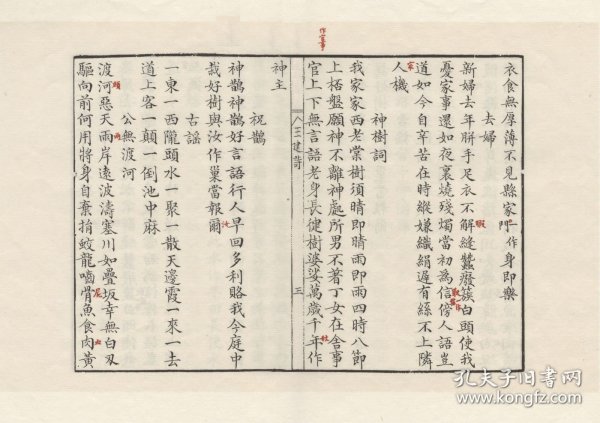 衣食無厚薄不見縣家門作身即樂
去婦
新婦去年胼手足衣不解縫蠶廢簇白頭使我
憂家事還如夜裏燒殘燭當初為信傍人語豈
道如今自辛苦在時縱嫌織絹遲有絲不上隣
家
人機
神樹詞
我家家西老棠樹須晴即晴雨即雨四時八節
上桮盤願神不離神處所男不著丁女在舍官事
官上下無言語老身長健樹婆娑萬歲千年作
神主
祝鵲
神鵲神鵲好言語行人早回多利賂我今庭中
栽好樹與汝作巢當報爾
汝
古謠
一東一西隴頭水一聚一散天邊霞一來一去
道上客一顛一倒池中麻
公無渡河
渡河惡天雨岸遠波濤塞川如疊坂幸無白刃
驅向前何用將身自棄捐蛟龍嚙骨魚食肉黃
八王建詩
三
孔夫子旧书网
www.kongfz.com